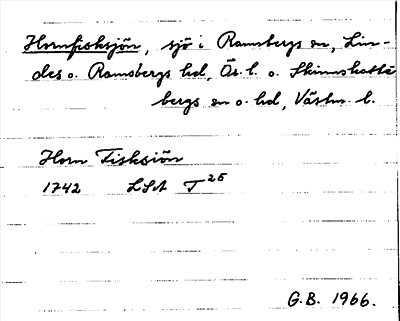 Hornfisksjön, sjö i Ramsbergs sn, Lin-
des o. Ramsbergs hd, Ös. l. o. Skinnskatte
bergs sn o. hd, Västm. l.
Horn Fisksiön
1742 LSA T 25
G.B. 1966.